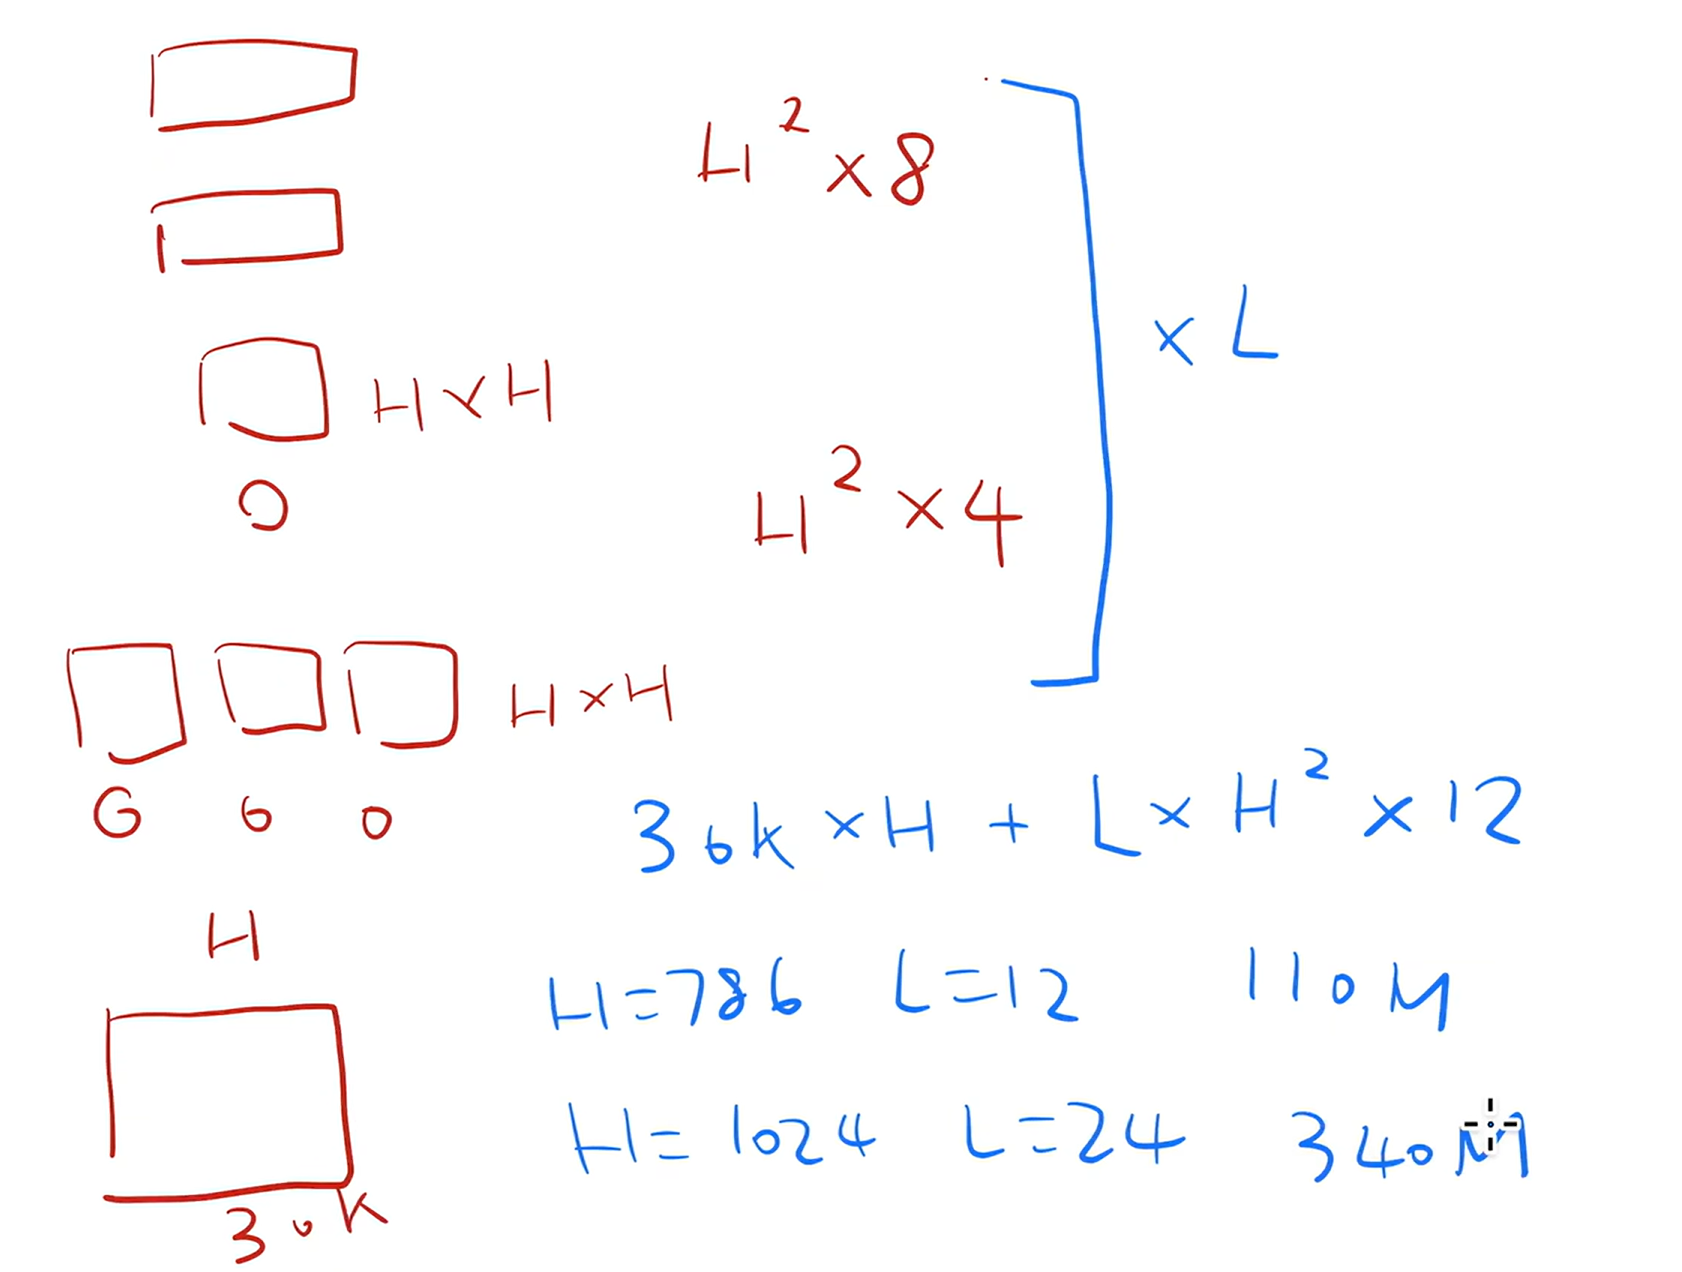 H² × 8
× L
H × H
O
H² × 4
H × H
G 6 0
30K × H + L × H² × 12
H
H = 786 L = 12 110M
H = 1024 L = 24 340M
30K